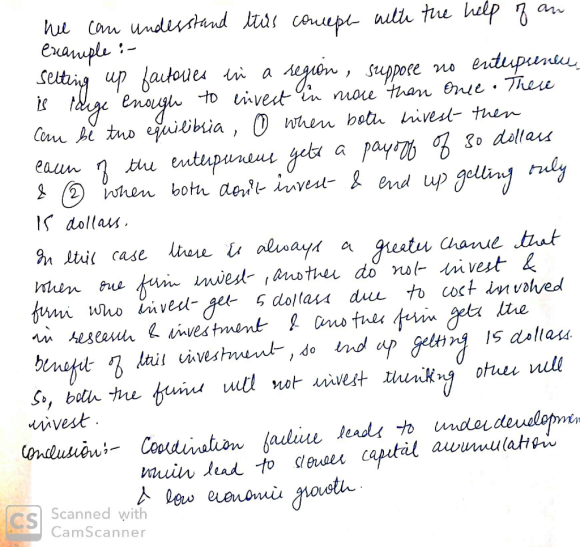 we can understand this concept with the help of an
example :-
Setting up factories in a region, suppose no enterpreneur
is large enough to invest in more than once. There
can be two equilibria, ① when both invest then
each of the enterpuneur gets a payoff of 30 dollars
& ② when both don't invest & end up getting only
15 dollars.
In this case there is always a greater chance that
when one firm invest, another do not invest &
firm who invest get 5 dollars due to cost involved
in research & investment & another firm gets the
benefit of this investment, so end up getting 15 dollars.
So, both the firms will not invest thinking other will
invest.
Conclusion:- Coordination failure leads to underdevelopmen
which lead to slower capital accumulation
& low economic growth.
CS Scanned with
CamScanner